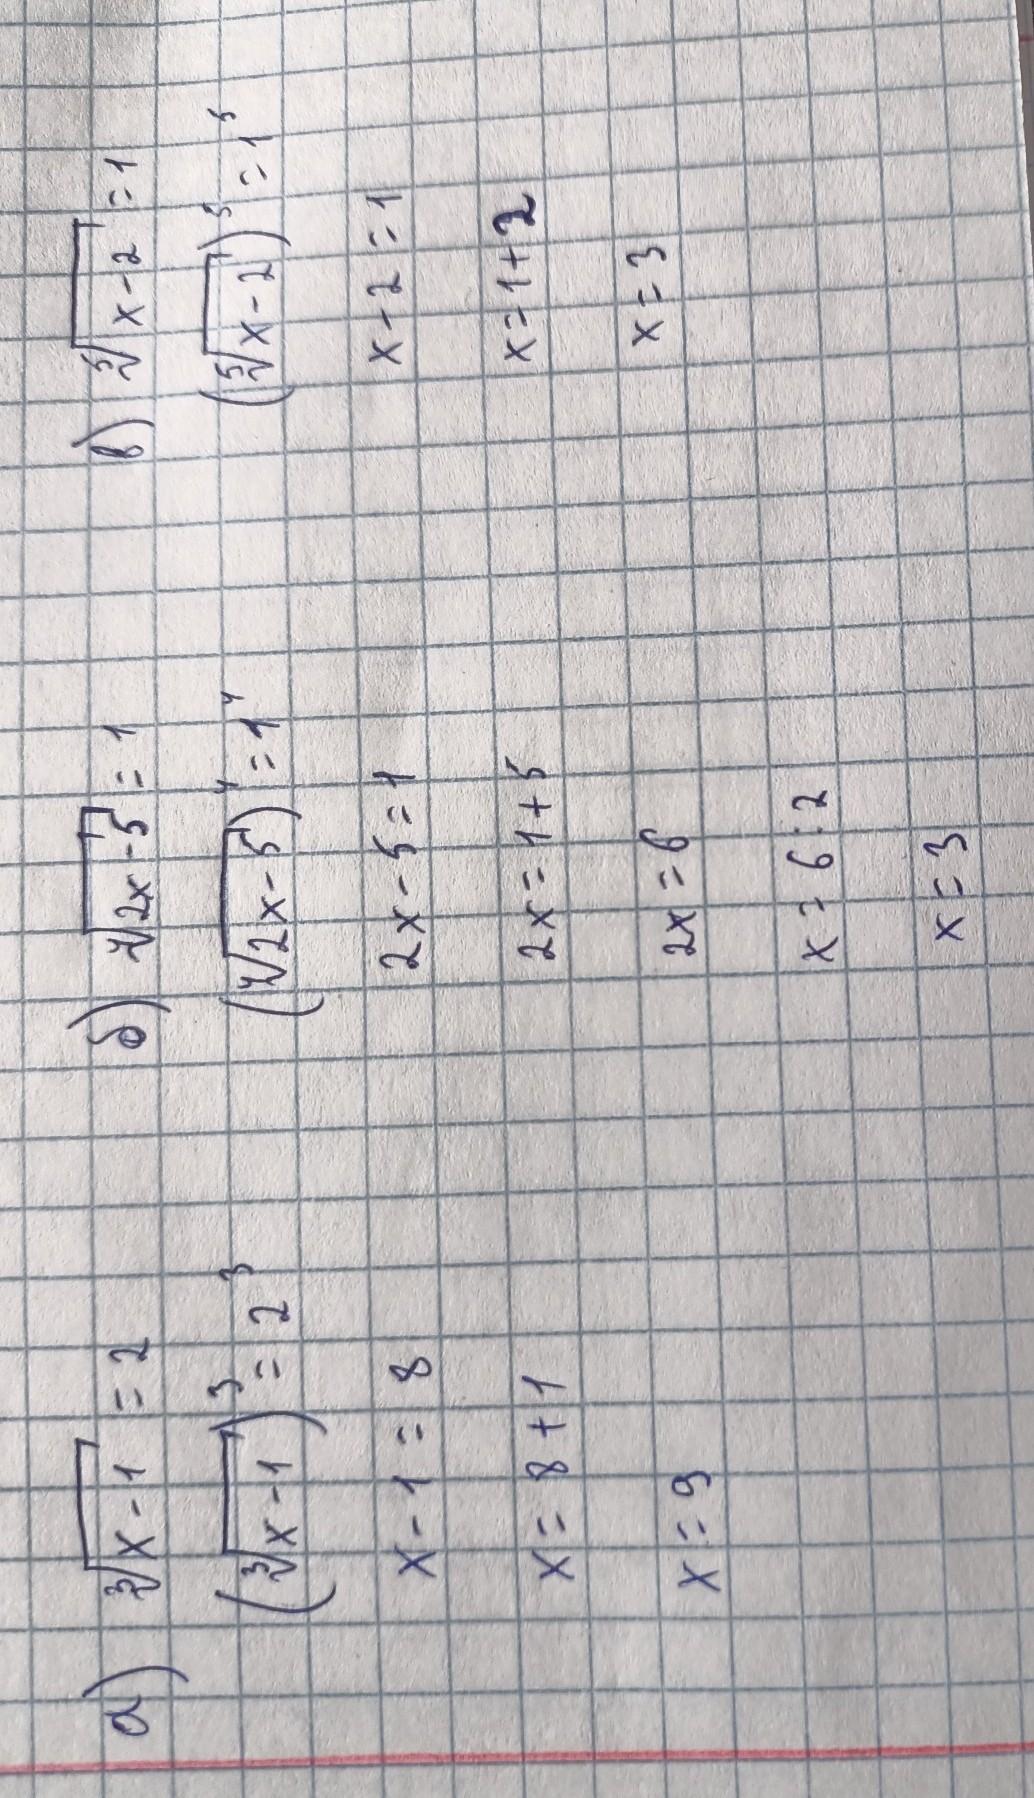 а) ∛x-1 = 2
(∛x-1)³ = 2³
x - 1 = 8
x = 8 + 1
x = 9
б) ∜2x-5 = 1
(∜2x-5)⁴ = 1⁴
2x - 5 = 1
2x = 1 + 5
2x = 6
x = 6 : 2
x = 3
в) ⁵√x-2 = 1
(⁵√x-2)⁵ = 1⁵
x - 2 = 1
x = 1 + 2
x = 3